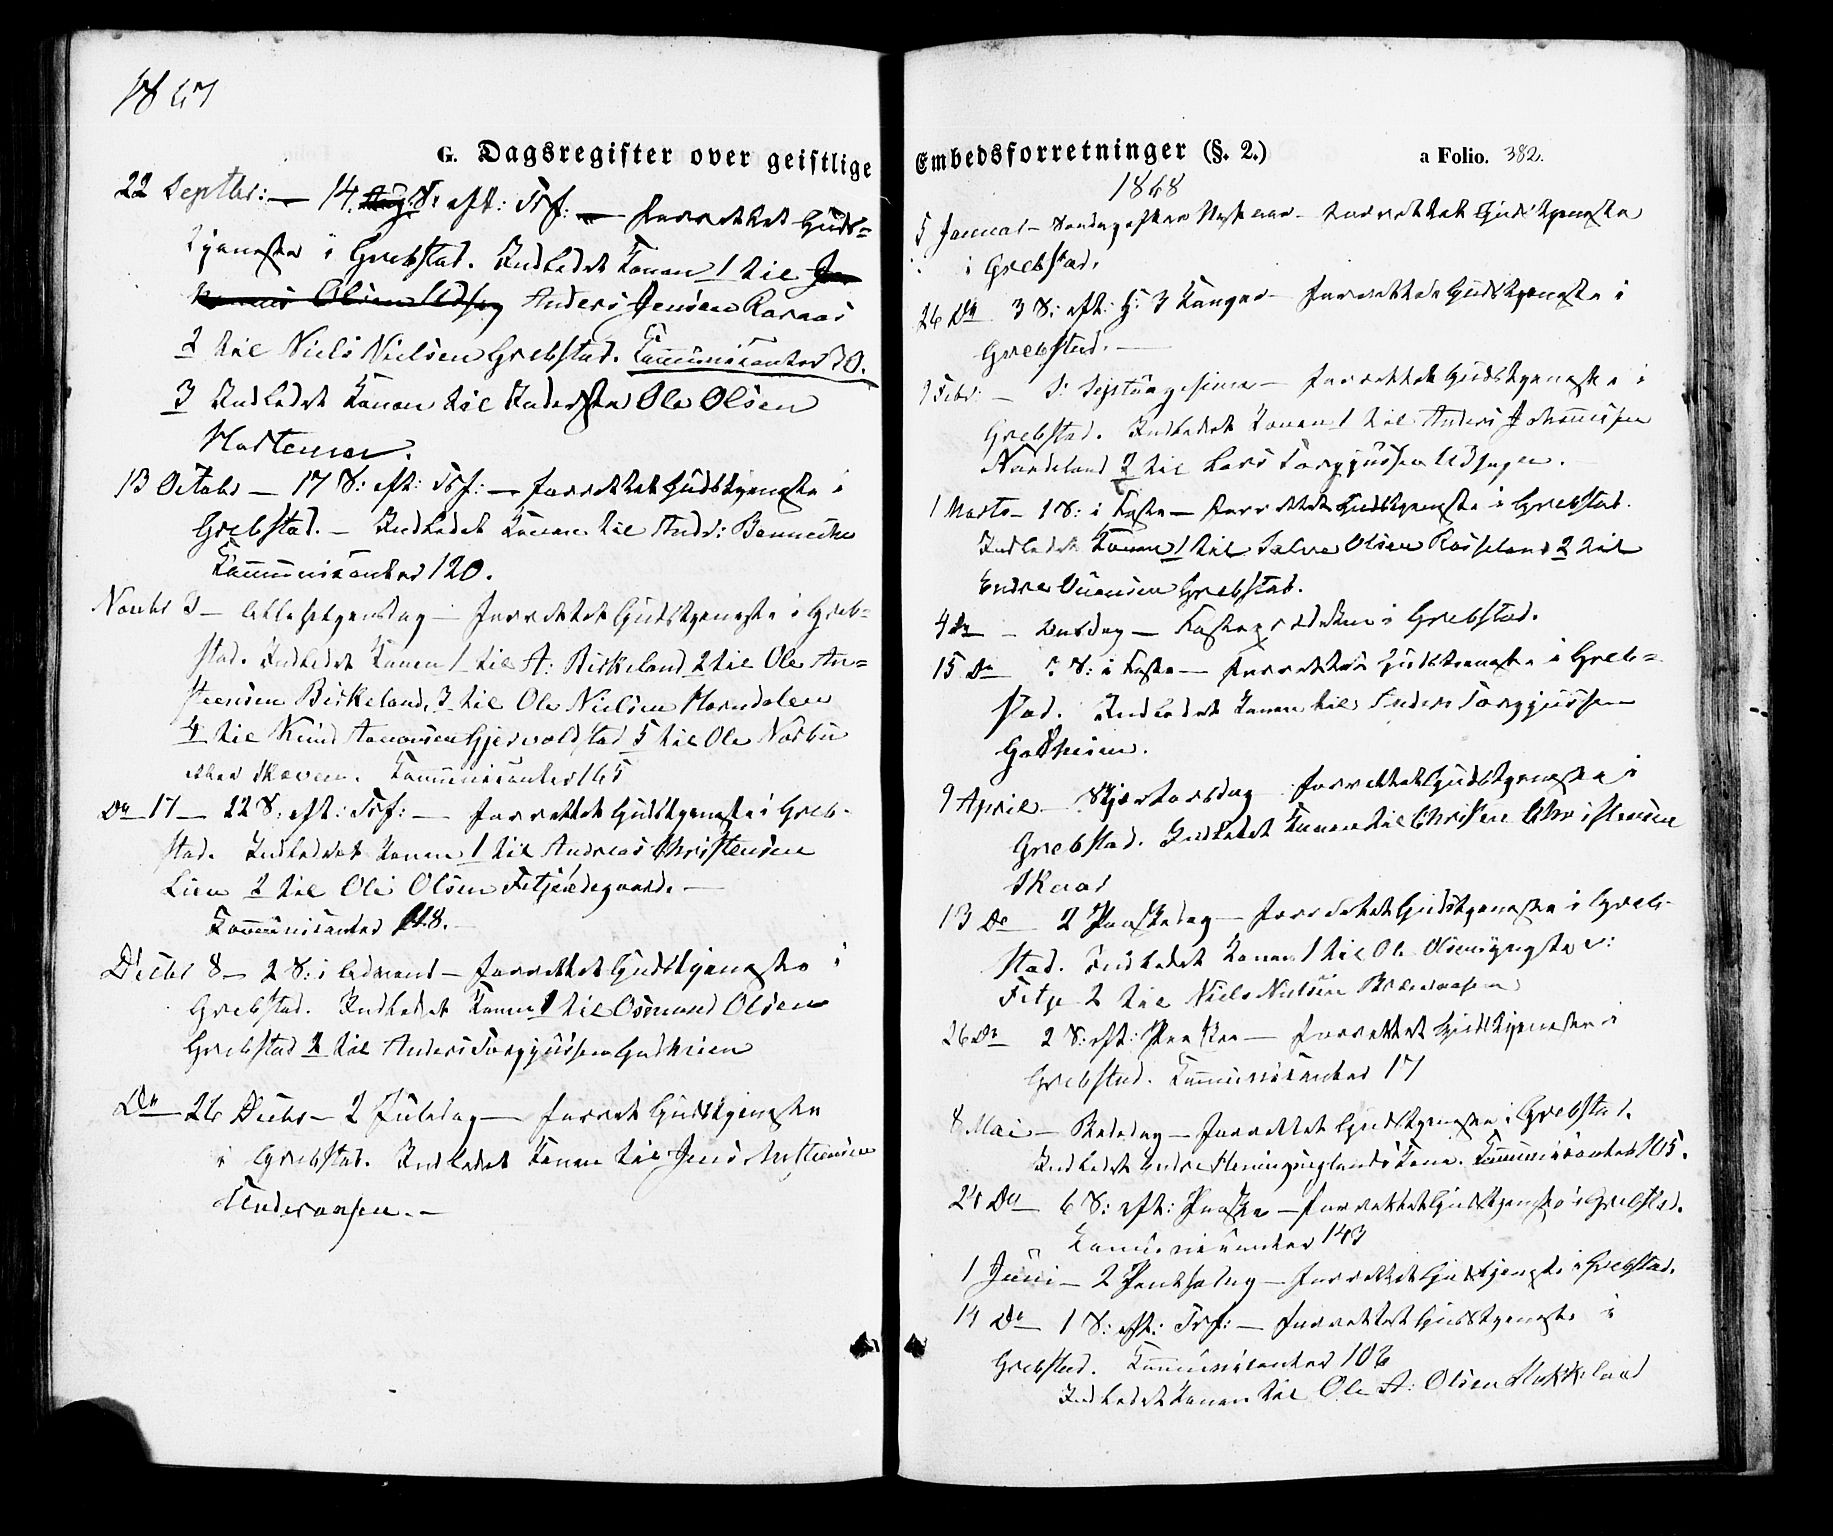 1867
G. Dagsregister over geistlige
22 Septbr: — 14. S: eft: Trf: — forrettet Guds=
tjeneste i Grebstad. Indledet Konen 1 til
Anders Jensen
2 til Niels Nielsen Grebstad. Communicanter 70.
3 Indledet Konen til Inderste Ole Olsen
13 Octobr — 17 S: eft: Trf: — forrettet Gudstjeneste i
Grebstad. — Indledet Konen til Andr:
Communicanter 120.
Novbr 3 — Allehelgensdag — forrettet Gudstjeneste i Greb=
stad. Indledet Konen 1 til A: Birkeland 2 til Ole An=
stensen Birkeland, 3 til Ole Nielsen
4 til Knud Aanonsen Gjervoldstad 5 til Ole
Communicanter 165
Do 17 — 22 S: eft: Trf: — forrettet Gudstjeneste i Greb-
stad. Indledet Konen 1 til Andreas Christensen
Lien 2 til Ole Olsen Fetjeødegaard. —
Communicanter 118.
Decbr 8 — 2 S: i Advent — forrettet Gudstjeneste i
Grebstad. Indledet Konen 1 til Osmund Olsen
Grebstad 2 til Anders Torgjussen Godheim
Do 26 Decbr — 2 Juledag — forret Gudstjeneste
i Grebstad. Indledet Konen til Jens Anstensen
Underaasen. —
Embedsforretninger (§. 2.)
a Folio. 382.
1868
5 Januar — Søndag efter Nytaar — forrettet Gudstjeneste
i Grebstad.
26 Do 3 S: eft: H: 3 Konger — forrettet Gudstjeneste i
Grebstad. —
9 Febr: — S: Septuagesima — forrettet Gudstjeneste i
Grebstad. Indledet Konen 1 til Anders Johannessen
2 til Lars Torgjussen
1 Marts — 1 S: i Faste — forrettet Gudstjeneste i Grebstad.
Indledet Konen 1 til Salve Olsen Rosseland 2 til
Endre Grebstad.
4 Do — Onsdag — Fasteprædiken i Grebstad.
15 Do S: i Faste — forrettet Gudstjeneste i Greb=
stad. Indledet Konen til Anders Torgjussen
Godheim.
9 April — Skjærtorsdag — forrettet Gudstjeneste i
Grebstad. Indledet Konen til Christen Christensen
Skaar
13 Do 2 Paaskedag — forrettet Gudstjeneste i Greb-
stad. Indledet Konen 1 til Ole Olsen yngste
Fetje 2 til Niels Nielsen
26 Do 2 S: eft: Paaske — forrettet Gudstjeneste i
Grebstad. Communicanter 17
8 Mai — Bededag — forrettet Gudstjeneste i Grebstad.
Indledet Endre Kone. Communicanter 105.
24 Do 6 S: eft: Paaske — forrettet Gudstjeneste i Grebstad.
Communicanter 143
1 Juni — 2 Pintsedag — forrettet Gudstjeneste i Grebstad.
14 Do 1 S: eft: Trf: — forrettet Gudstjeneste i
Grebstad. Communicanter 106
Indledet Konen til Ole A: Olsen